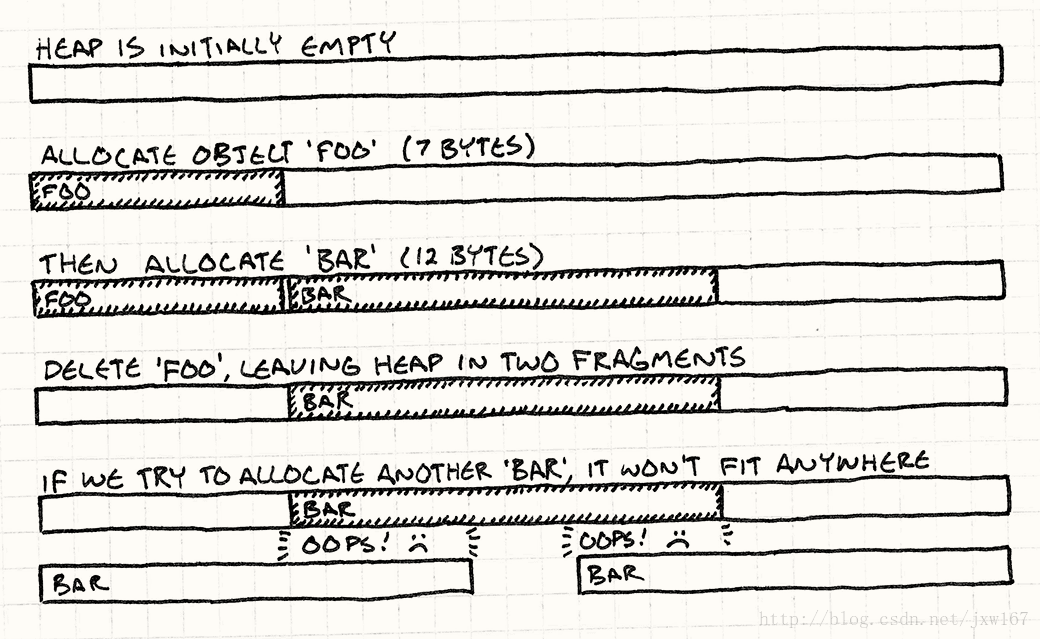 HEAP IS INITIALLY EMPTY
ALLOCATE OBJECT 'FOO' (7 BYTES)
FOO
THEN ALLOCATE 'BAR' (12 BYTES)
FOO BAR
DELETE 'FOO', LEAVING HEAP IN TWO FRAGMENTS
BAR
IF WE TRY TO ALLOCATE ANOTHER 'BAR', IT WON'T FIT ANYWHERE
BAR
OOPS! OOPS!
BAR BAR
http://blog.csdn.net/jxw167